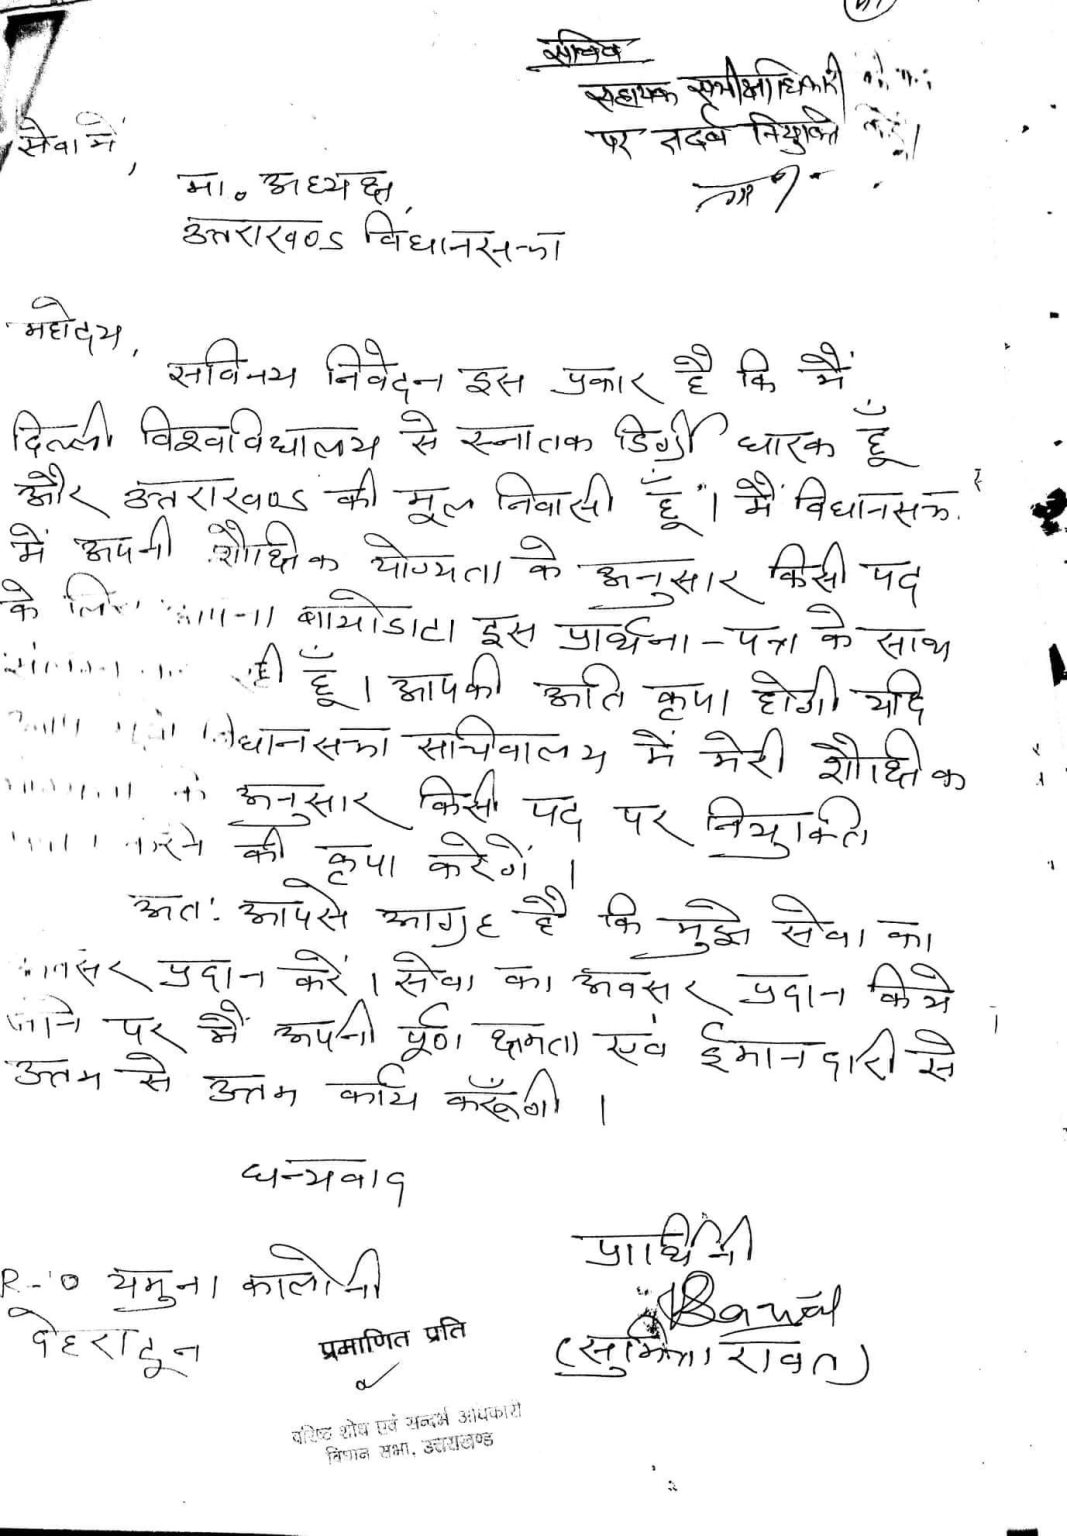 सचिव
सहायक समीक्षाधिकारी के पद
पर तदर्थ नियुक्ति करें।
सेवा में,
मा. अध्यक्ष,
उत्तराखण्ड विधानसभा
महोदय,
सविनय निवेदन इस प्रकार है कि मैं
दिल्ली विश्वविद्यालय से स्नातक डिग्री धारक हूँ
और उत्तराखण्ड की मूल निवासी हूँ। मैं विधानसभा
में अपनी शैक्षिक योग्यता के अनुसार किसी पद
के लिए अपना बायोडाटा इस प्रार्थना-पत्र के साथ
रही हूँ। आपकी अति कृपा होगी यदि
आप विधानसभा सचिवालय में मेरी शैक्षिक
के अनुसार किसी पद पर नियुक्ति
करने की कृपा करेगें।
अत: आपसे आग्रह है कि मुझे सेवा का
अवसर प्रदान करें। सेवा का अवसर प्रदान किये
जाने पर मैं अपनी पूर्ण क्षमता एवं ईमानदारी से
उत्तम से उत्तम कार्य करूँगी।
धन्यवाद
प्रार्थिनी
R- यमुना कालोनी
देहरादून
प्रमाणित प्रति
(सुमित्रा रावत)
वरिष्ठ शोध एवं सन्दर्भ अधिकारी
विधान सभा, उत्तराखण्ड